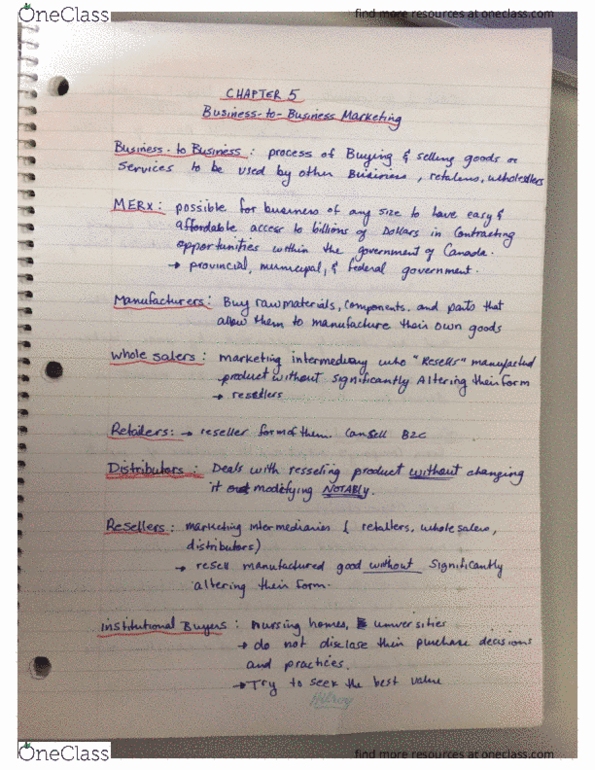 OneClass
find more resources at oneclass.com
CHAPTER 5
Business-to-Business Marketing
Business-to Business: process of Buying & selling goods or
services to be used by other Business, retailers, wholesellers
MERX: possible for business of any size to have easy &
affordable access to billions of Dollars in Contracting
opportunities within the government of Canada.
→ provincial, municipal, & federal government.
Manufacturers: Buy raw materials, components, and parts that
allow them to manufacture their own goods
Whole salers: marketing intermediary who "Resells" manufacted
product without significantly Altering their form
→ resellers
Retailers: → reseller form of them. Can sell B2C
Distributors: Deals with resseling product without changing
it modifying NOTABLY.
Resellers: marketing intermediaries ( retailers, whole salers,
distributors)
→ resell manufactured good without significantly
altering their form.
Institutional Buyers: Nursing homes, universities
→ do not disclase their purchase decisions
and practices.
→ Try to seek the best value
Hilroy
OneClass
find more resources at oneclass.com